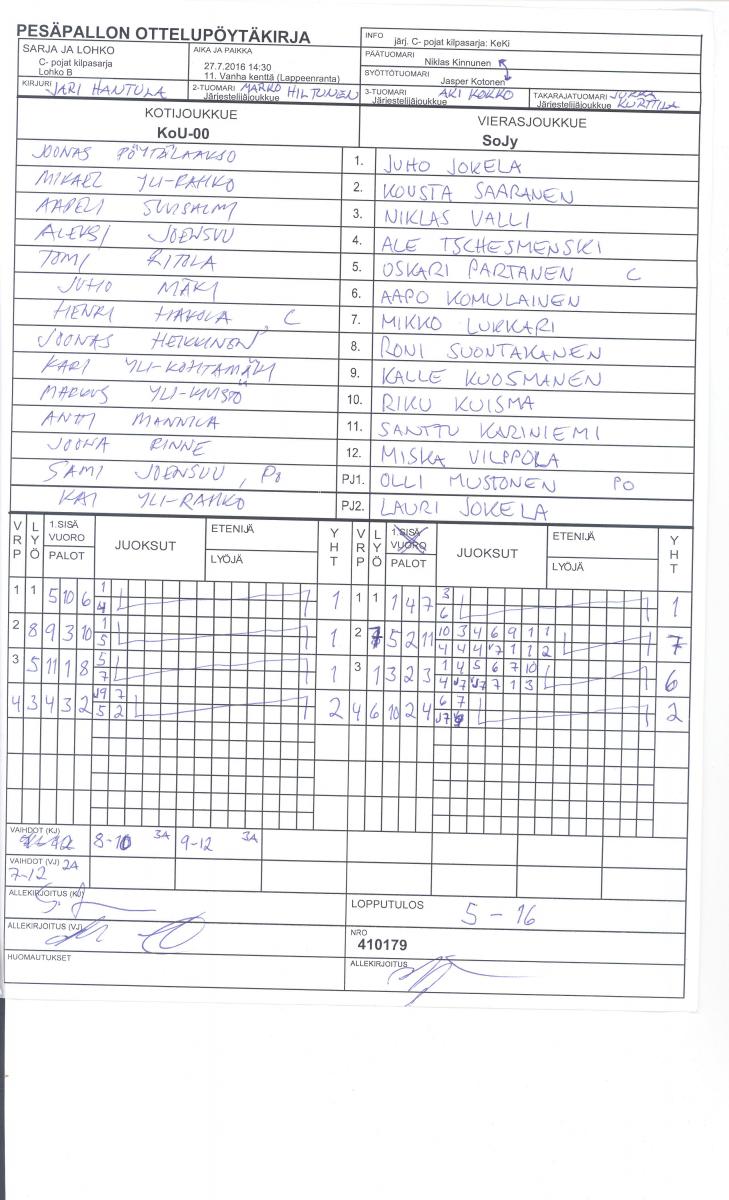 PESÄPALLON OTTELUPÖYTÄKIRJA
INFO järj. C- pojat kilpasarja: KeKi
SARJA JA LOHKO
C- pojat kilpasarja
Lohko B
AIKA JA PAIKKA
27.7.2016 14:30
11. Vanha kenttä (Lappeenranta)
PÄÄTUOMARI
Niklas Kinnunen
SYÖTTÖTUOMARI
Jasper Kotonen
KIRJURI JARI HANTULA
2-TUOMARI MARKO HILTUNEN
Järjestelijäjoukkue
3-TUOMARI AKI KOKKO
Järjestelijäjoukkue
TAKARAJATUOMARI JUKKA KURTTILA
Järjestelijäjoukkue
KOTIJOUKKUE
KoU-00
VIERASJOUKKUE
SoJy
JOONAS PÖYTÄLAAKSO 1. JUHO JOKELA
MIKAEL YLI-RAHKO 2. KOUSTA SAARANEN
AAPELI SUVISALMI 3. NIKLAS VALLI
ALEKSI JOENSUU 4. ALE TSCHESMENSKI
TOMI RITOLA 5. OSKARI PARTANEN C
JUHO MÄKI 6. AAPO KOMULAINEN
HENRI HAKOLA, C 7. MIKKO LUKKARI
JOONAS HEIKKINEN 8. RONI SUONTAKANEN
KARI YLI-KOHTAMÄKI 9. KALLE KUOSMANEN
MARKUS YLI-KIVISTÖ 10. RIKU KUISMA
ANTTI MANNILA 11. SANTTU KARINIEMI
JOONA RINNE 12. MISKA VILPPOLA
SAMI JOENSUU, Po PJ1. OLLI MUSTONEN PO
KAI YLI-RAHKO PJ2. LAURI JOKELA
VRP LYÖ 1.SISÄ VUORO PALOT JUOKSUT ETENIJÄ LYÖJÄ YHT VRP LYÖ 1.SISÄ VUORO PALOT JUOKSUT ETENIJÄ LYÖJÄ YHT
1 1 5 10 6 1 4 1 1 1 1 4 7 3 6 1
2 8 9 3 10 1 5 1 2 5 2 11 10 3 4 6 9 1 1 7
4 4 4 17 1 1 2
3 5 11 1 8 5 7 1 3 1 3 2 3 1 4 5 6 7 10 6
4 3 4 3 2 5 2 2 4 6 10 2 4 6 7 2
VAIHDOT (KJ)
8-10 3A 9-12 3A
VAIHDOT (VJ) 2A
7-12
ALLEKIRJOITUS (KJ)
LOPPUTULOS 5 - 16
ALLEKIRJOITUS (VJ)
NRO
410179
HUOMAUTUKSET
ALLEKIRJOITUS